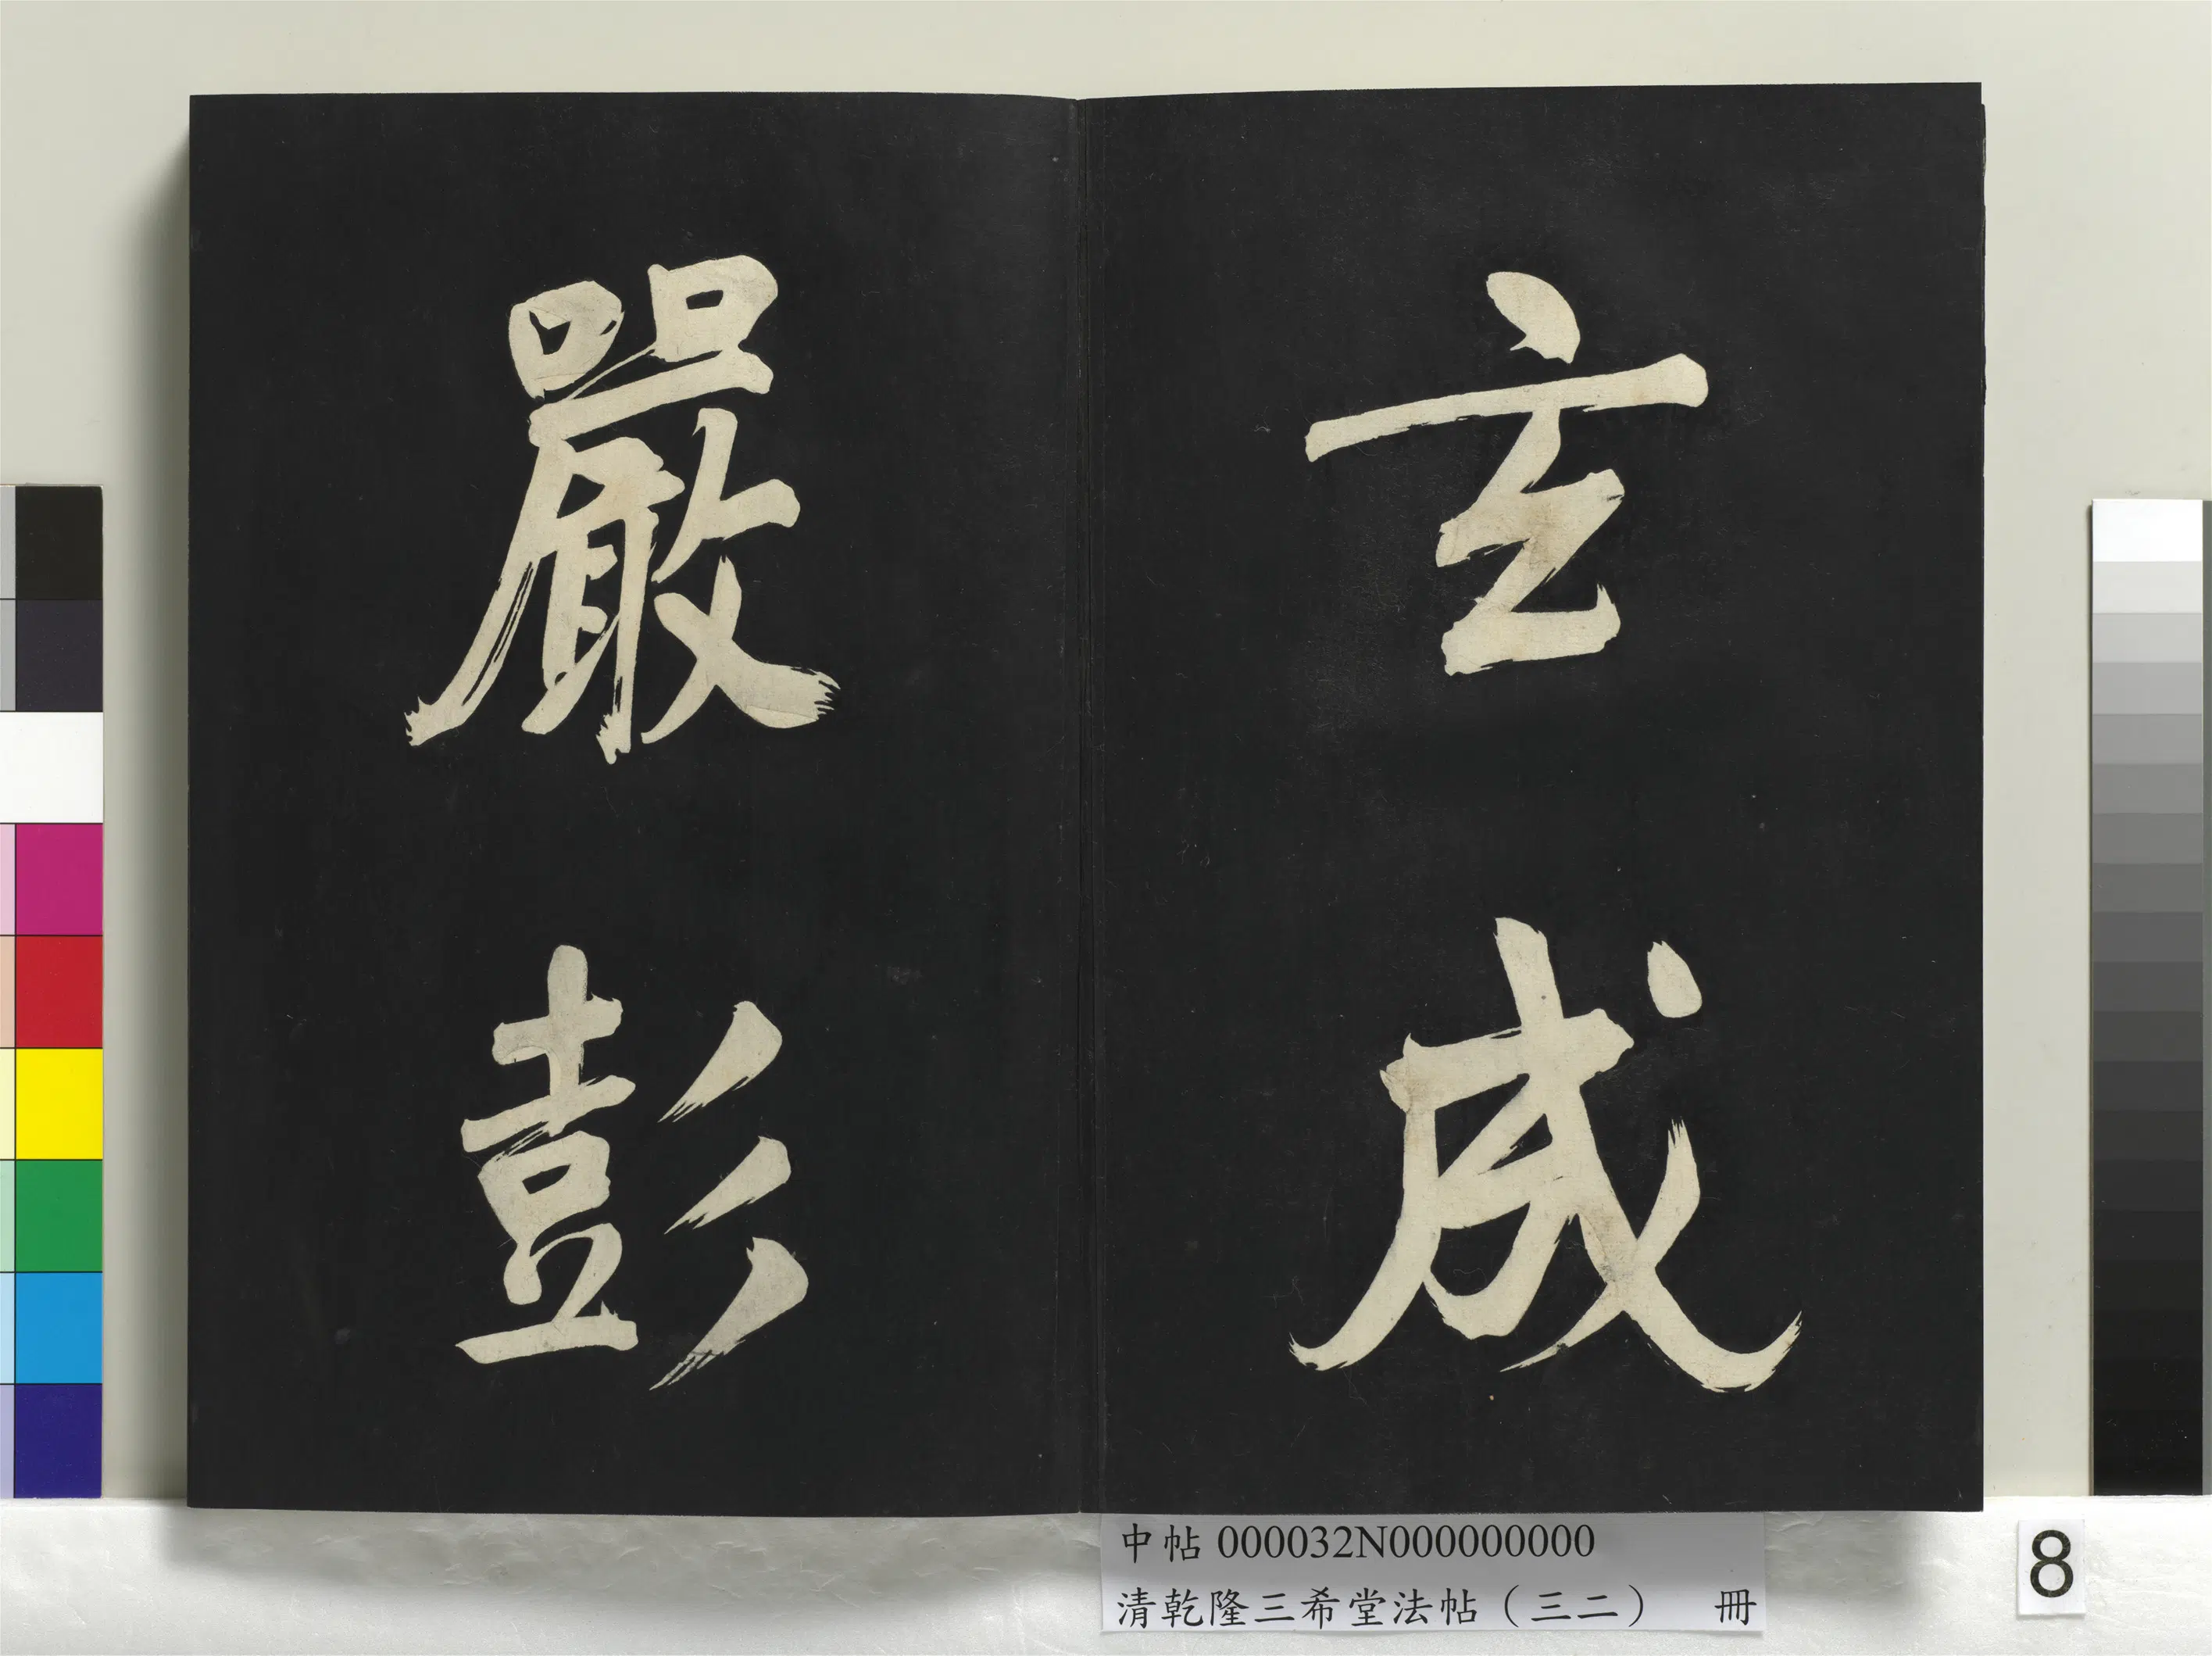 玄成
嚴彭
中帖 000032N000000000
清乾隆三希堂法帖（三二） 冊
8